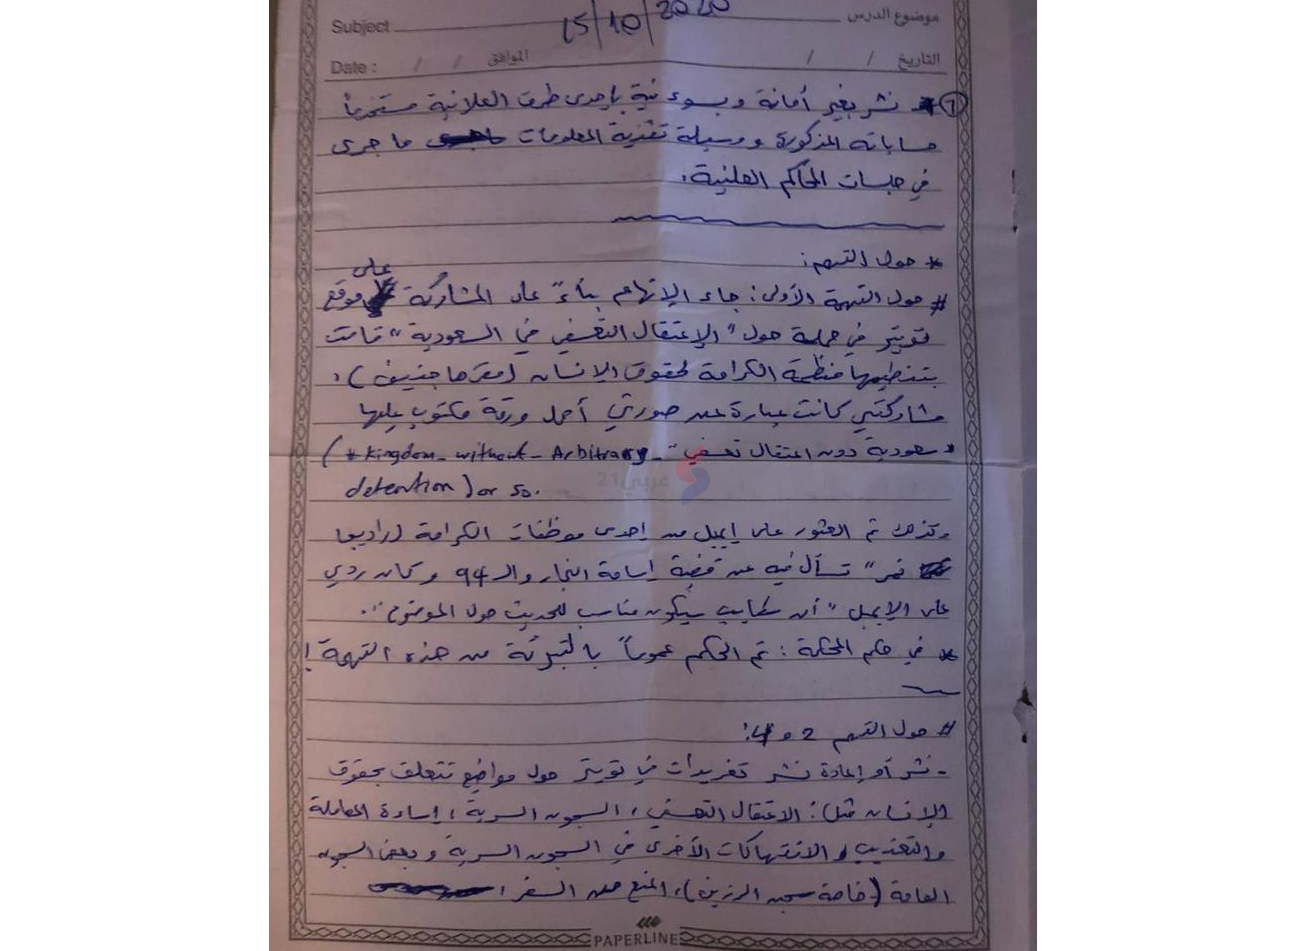 15/10/2020
Subject موضوع الدرس
Date : / / الموافق / / التاريخ
7 نشر بغير أمانة وبسوء نية بإحدى طرق العلانية مستخدماً
حساباته المذكورة ووسيلة تقنية المعلومات ما جرى
في جلسات المحاكم العلنية.
* حول التهم:
# حول التهمة الأولى: جاء الإتهام بناءً على المشاركة على موقع
تويتر في حملة حول "الإعتقال التعسفي في السعودية" قامت
بتنظيمها منظمة الكرامة لحقوق الإنسان (مقرها جنيف).
مشاركتي كانت عبارة عن صورتي أحمل ورقة مكتوب عليها
"سعودية دون اعتقال تعسفي" (# Kingdom_without_Arbitrary_
detention) or so.
وكذلك تم العثور على إيميل من إحدى موظفات الكرامة (راديا
تسأل فيه عن قضية أسامة النجار والـ 94 وكان ردي
على الإيميل "أن سكايب سيكون مناسب للحديث حول الموضوع".
* في حكم المحكمة: تم الحكم عموماً بالتبرئة من هذه التهمة!
# حول التهم 2 و 4:
- نشر أو إعادة نشر تغريدات في تويتر حول مواضيع تتعلق بحقوق
الإنسان مثل: الاعتقال التعسفي، السجون السرية، إساءة المعاملة
والتعذيب والانتهاكات الأخرى في السجون السرية وبعض السجون
العامة (خاصة سجن الرزين)، المنع من السفر،
عربي21
PAPERLINE